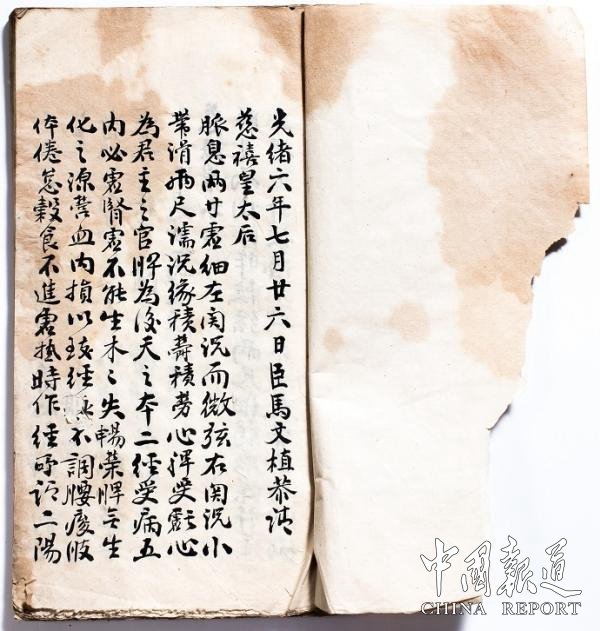 光緒六年七月廿六日臣馬文植恭請
慈禧皇太后
脈息兩寸虛細左関沉而微弦右関沉小
帶滑兩尺濡沉緣積鬱積勞心脾受虧心
為君主之官脾為後天之本二經受病五
內必虛腎虛不能生木木失暢榮脾乏生
化之源營血內損以致經不調腰痠肢
体倦怠穀食不進虛熱時作經所謂二陽
中国報道
CHINA REPORT